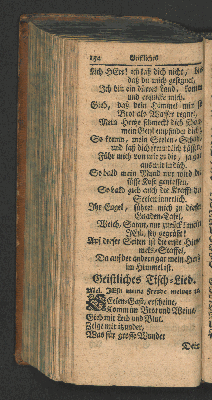 152 Geistliches
lich HErr! ich laß dich nicht, bis
daß du mich gesegnet,
Ich bin ein dürres Land, komm
und erquicke mich.
Gieb, daß dein Himmel mir
Brot als Wasser regnet
Mein Hertze schmeckt dich
mein Geist empfindet dich
So komm, mein Seelen-Schatz
und laß dich freundlich küssen,
Führ mich von mir zu dir,
aus mir in dich.
So bald mein Mund nur wird die
süsse Kost geniessen,
So bald zieh auch die Krafft
Seelen innerlich.
Ihr Engel, führet mich zu dieser
Gnaden-Tafel,
Weich, Satan, nur zurück! mein
Heil, sey gegrüßt!
Auf dieser Seiten ist die erste Himmels-
Staffel,
Da auf der andern gar mein Hertz
im Himmel ist.
Geistliches Tisch-Lied.
Mel. JEsu meine Freude meines
Seelen-Gast, erscheine,
Komm im Brot und Weine,
Gieb mir Leib und Blut.
Zeige mir itzunder,
Was für grosse Wunder
Dein